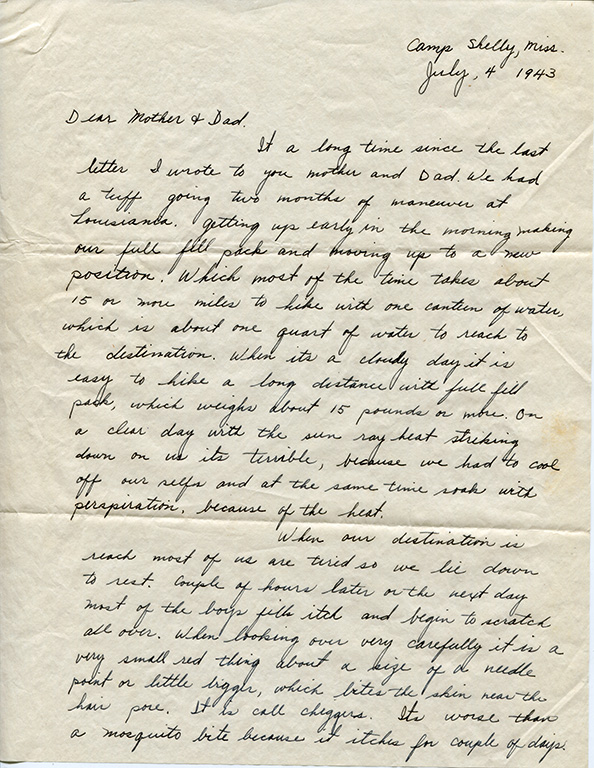 Camp Shelly, Miss.
July, 4 1943
Dear Mother & Dad.
It a long time since the last
letter I wrote to you mother and Dad. We had
a tuff going two months of maneuver at
Louisiania. Getting up early in the morning making
our full fill pack and moving up to a new
position. Which most of the time takes about
15 or more miles to hike with one canteen of water
which is about one quart of water to reach to
the destination. When its a cloudy day it is
easy to hike a long distance with full fill
pack, which weighs about 15 pounds or more. On
a clear day with the sun ray heat striking
down on us its terrible, because we had to cool
off our selfs and at the same time soak with
perspiration, because of the heat.
When our destination is
reach most of us are tired so we lie down
to rest. Couple of hours later or the next day
most of the boys fells itch and begin to scratch
all over. When looking over very carefully it is a
very small red thing about a size of a needle
point or little bigger, which bites the skin near the
hair pore. It is call cheggers. Its worse than
a mosquito bite because it itches for couple of days.